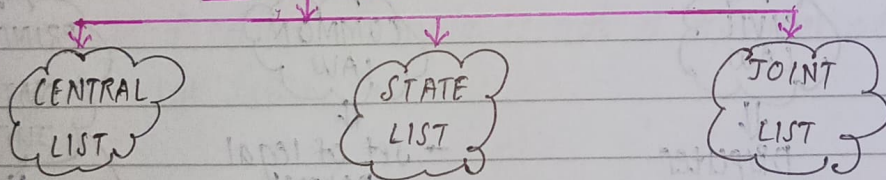 CENTRAL
LIST
STATE
LIST
JOINT
LIST